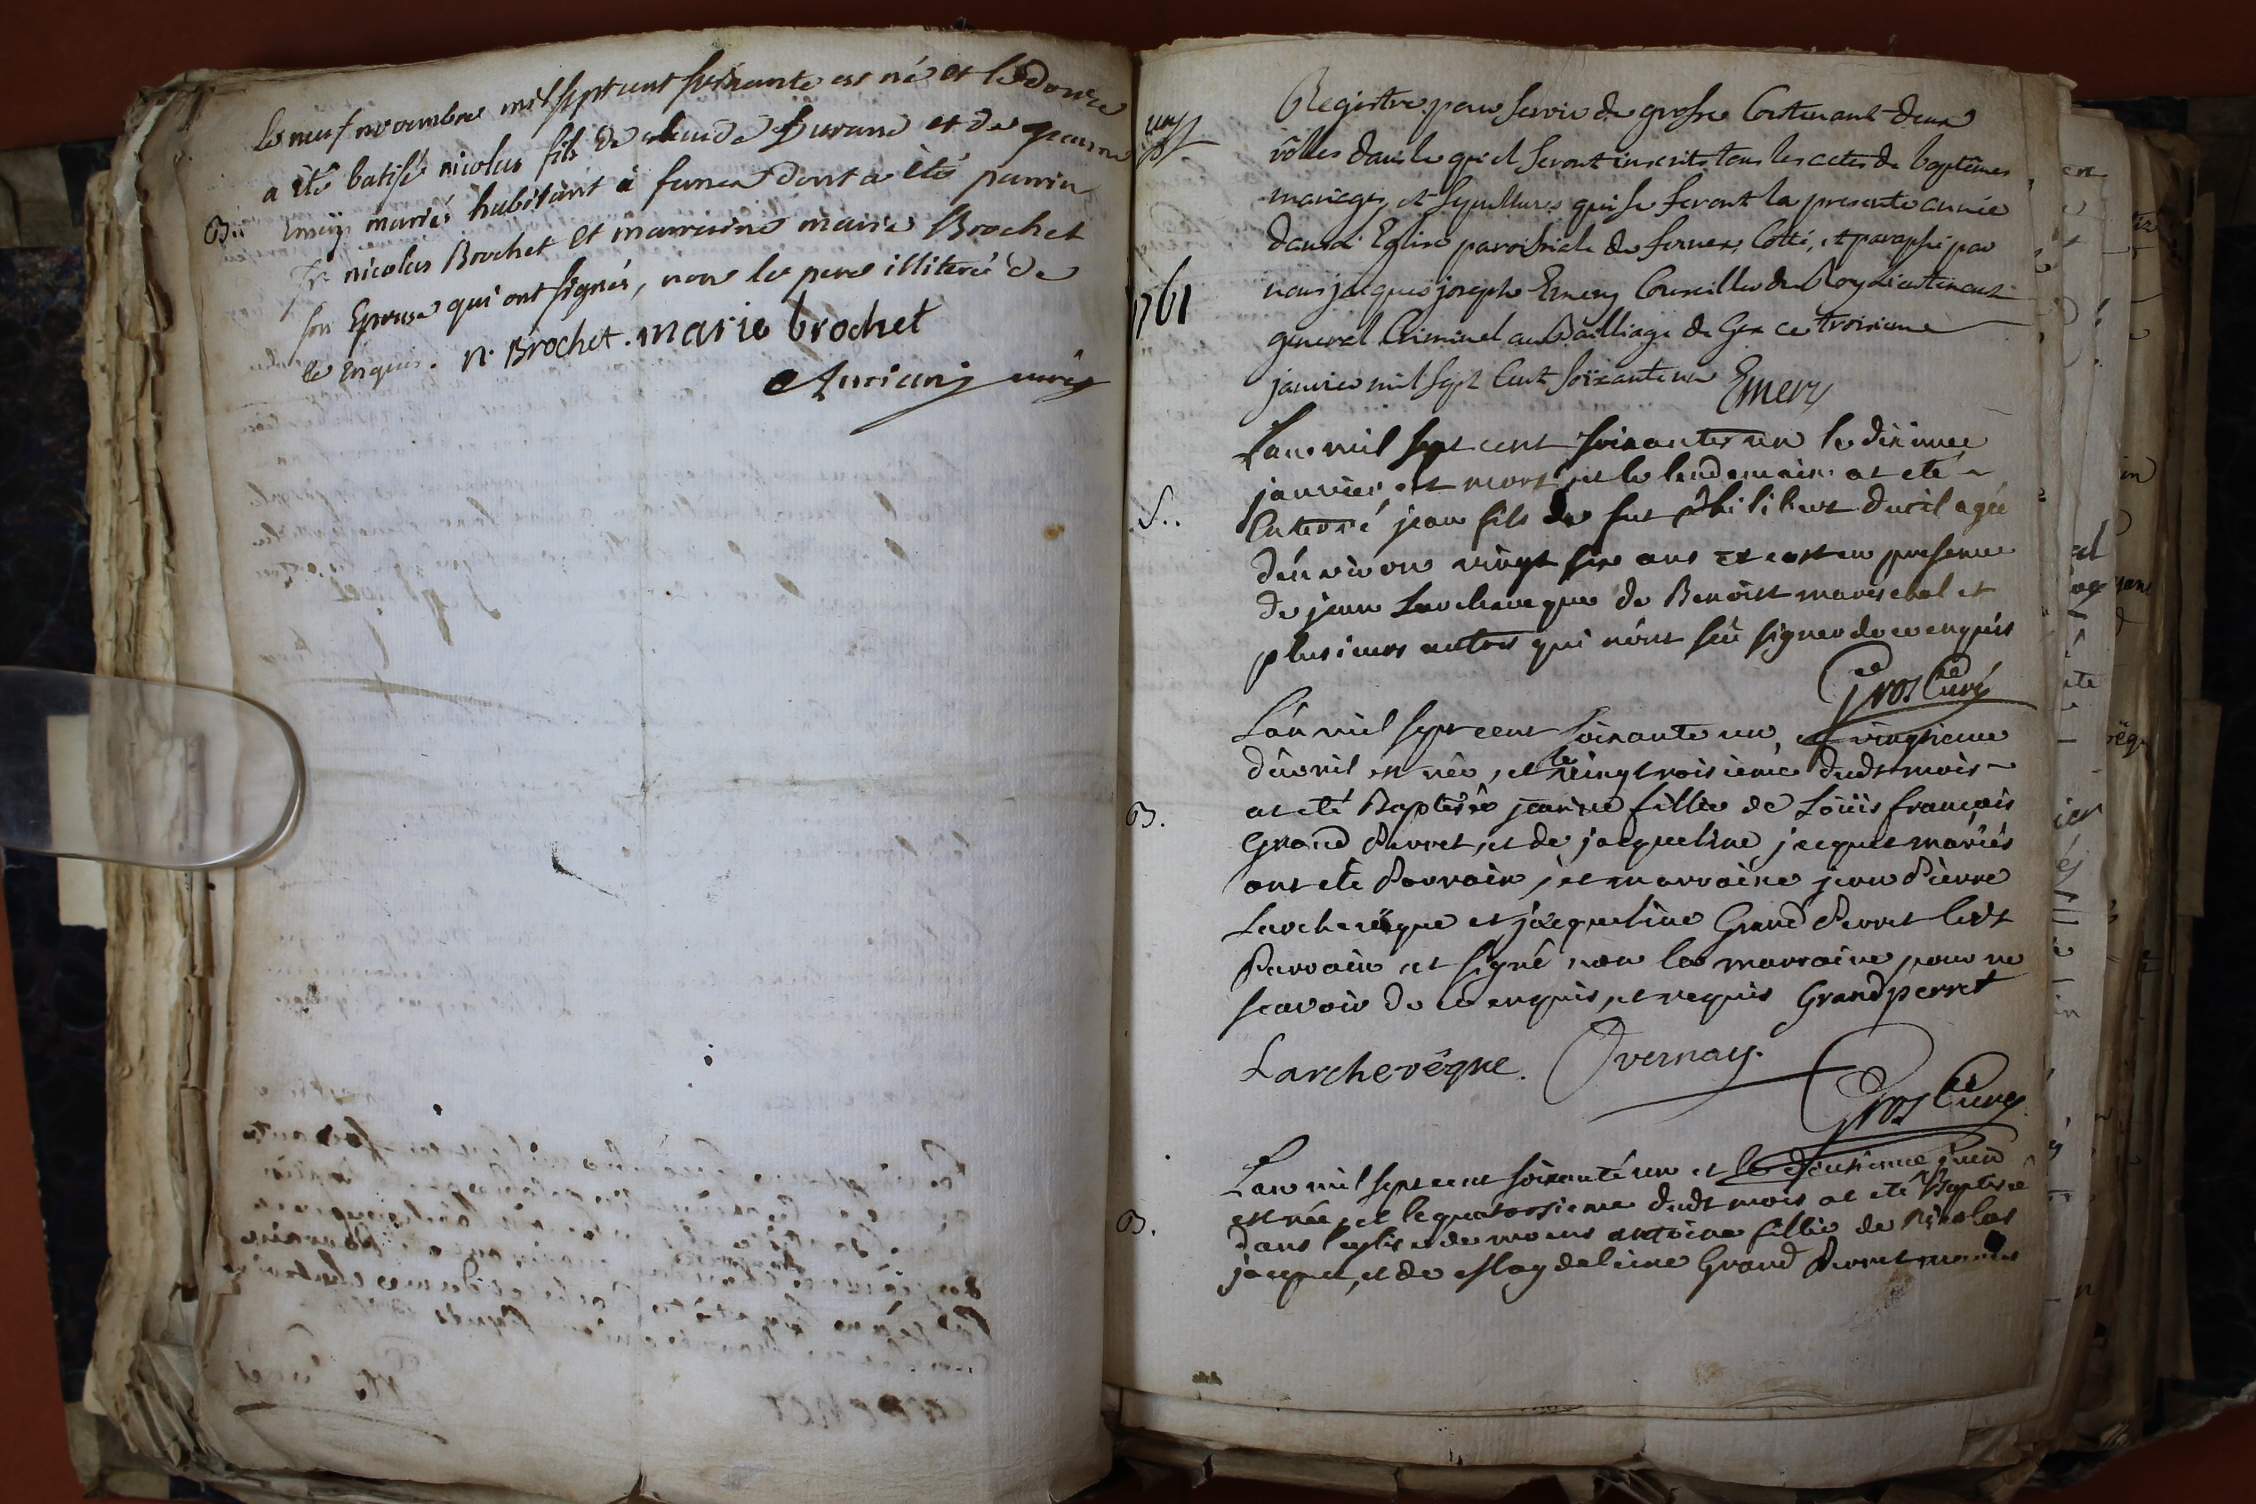 Le neuf novembre mil sept cent soixante est né et le douze
a été batisé nicolas fils de claude Durand et de jeanne
B..
Emery mariés habitant à fernex dont a été parrin
Sr. nicolas Brochet et marraine marie Brochet
son Epouse qui ont signés, non le pere illiteré de
ce enquis. n. Brochet. marie brochet
Ancian curé
un
Registre pour servir de grosse Contenant deux
rôlles dans le quel seront inscrits tous les actes de baptêmes
mariages, et sepultures qui se feront la presente année
dans l'Eglise paroissiale de fernex, Cotté, et paraphé par
nous jacques joseph Emery Conseiller du Roy Lieutenant
1761
general Criminel au Bailliage de Gex ce troisieme
janvier mil sept Cent soixante un Emery
L'an mil sept cent soixante un le dixieme
janvier est mort, et le lendemain at eté
S..
Enterré jean fils de fut philibert ducil agé
d'environ vingt six ans et cest en presence
de jean Larcheveque de Benoist mareschal et
plusieurs autres qui n'ont sçû signer de ce enquis
Gros Curé
L'an mil sept cent soixante un, et vingtieme
d'avril est née, et le vingt troisieme dudt mois
B.
at eté Baptisée jeanne fillie de Loüis françois
Grand Perret, et de jacqueline jacquet mariés
ont eté Parrain, et marraine jean Pierre
Larcheveque et jacqueline Grand Perret ledt
Parrain at signé non la marraine pour ne
scavoir de ce enquis, et requis Grandperret
Larchevêque. Overnay.
Gros Curé
L'an mil sept cent soixante un et le douzieme juin
est née, et le quatorsieme dudt mois at eté Baptisée
B.
dans l'eglise de moens antoina fillie de Nicolas
jacquet, et de Magdeleine Grand Perret mariés